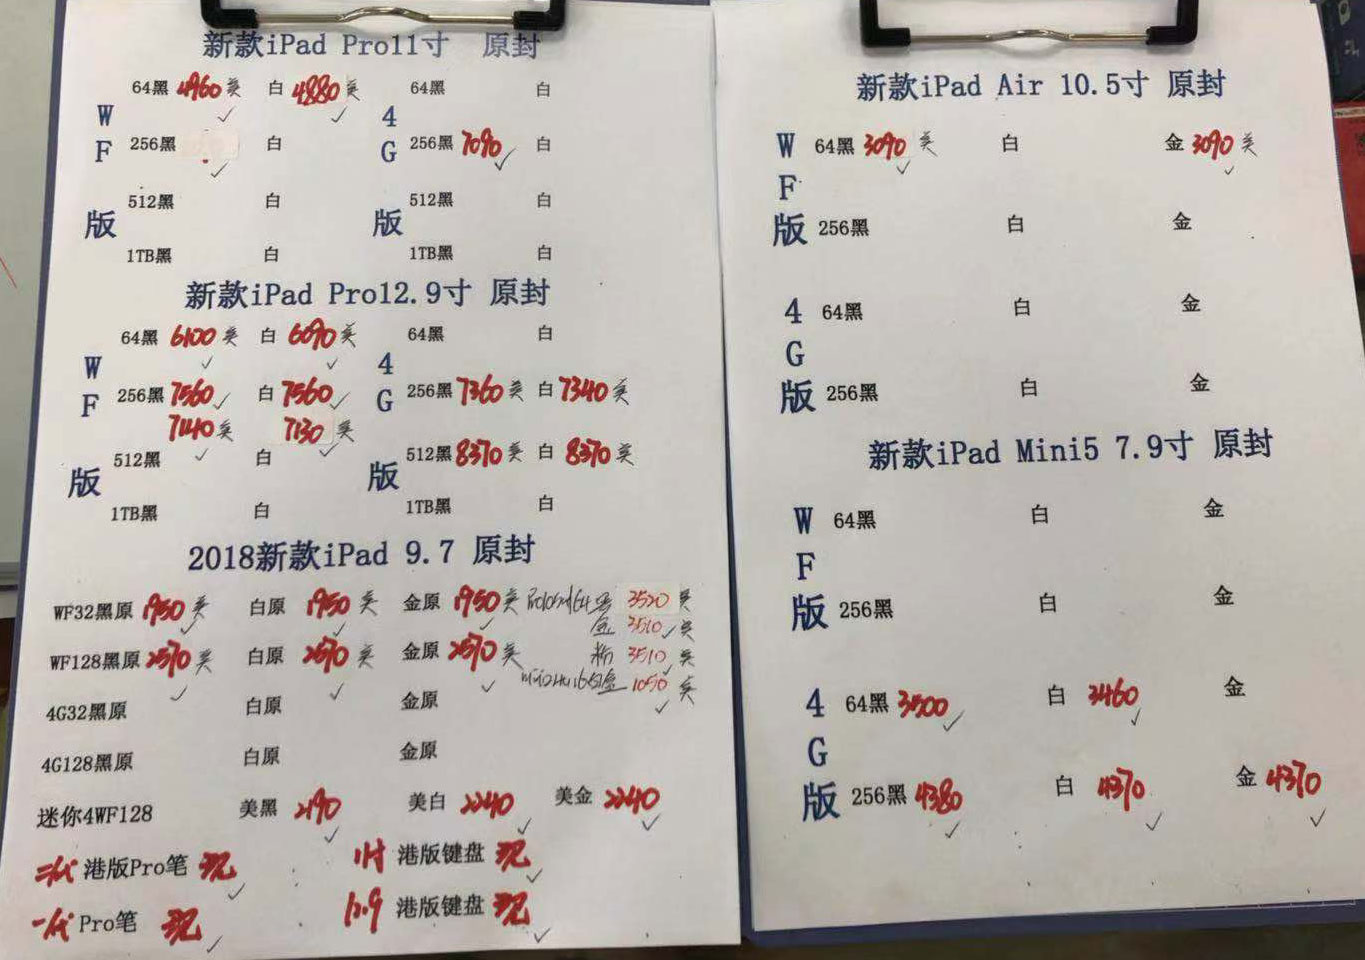 新款iPad Pro11寸 原封
WF版
64黑 4960美 白 4880美
256黑 白
512黑 白
1TB黑 白
4G版
64黑 白
256黑 7090 白
512黑 白
1TB黑 白
新款iPad Pro12.9寸 原封
WF版
64黑 6100美 白 6090美
256黑 7560 白 7560
7140美 7130美
512黑 白
1TB黑 白
4G版
64黑 白
256黑 7360美 白 7340美
512黑 8370美 白 8370美
1TB黑 白
2018新款iPad 9.7 原封
WF32黑原 1950美 白原 1950美 金原 1950美
3520美
金 3510美
WF128黑原 2570美 白原 2570美 金原 2570美
粉 3510美
金 1050美
4G32黑原 白原 金原
4G128黑原 白原 金原
迷你4WF128 美黑 2190 美白 2240 美金 2240
二代 港版Pro笔 现 11寸 港版键盘 现
一代 Pro笔 现 12.9 港版键盘 现
新款iPad Air 10.5寸 原封
WF版
64黑 3090美 白 金 3090美
256黑 白 金
4G版
64黑 白 金
256黑 白 金
新款iPad Mini5 7.9寸 原封
WF版
64黑 白 金
256黑 白 金
4G版
64黑 3500 白 3460 金
256黑 4380 白 4370 金 4370